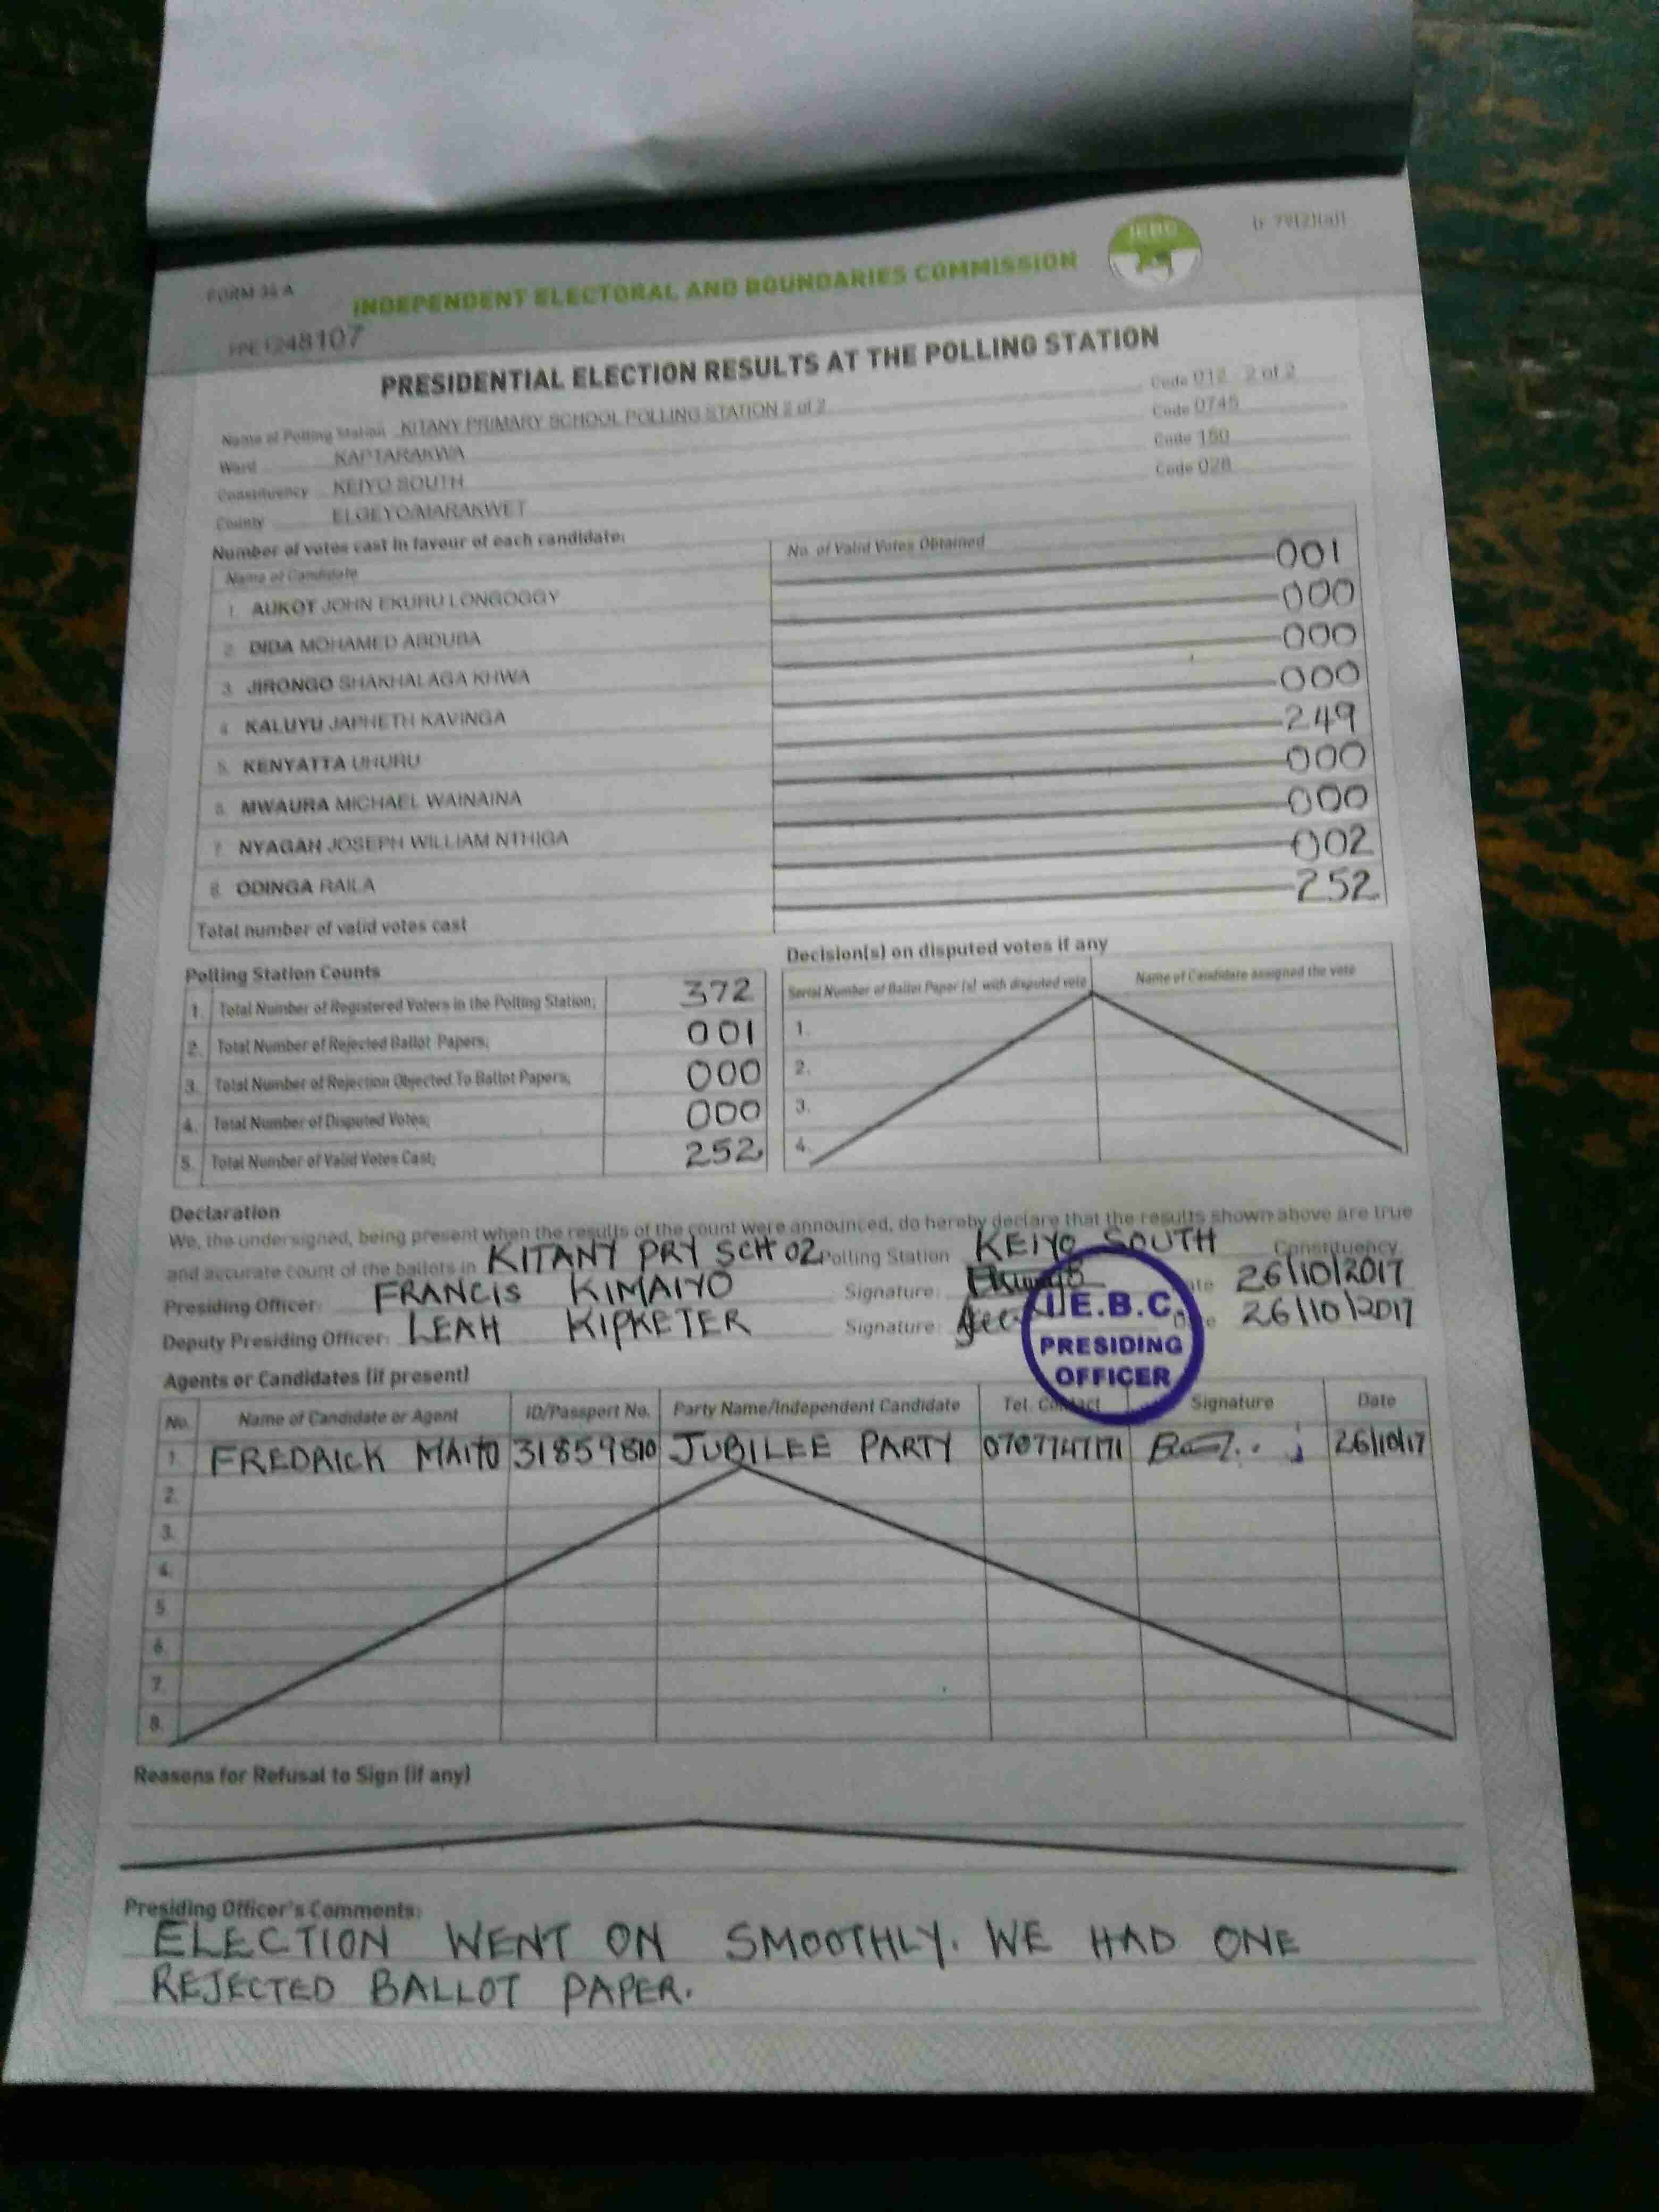 FORM 34 A
INDEPENDENT ELECTORAL AND BOUNDARIES COMMISSION
IEBC
248107
PRESIDENTIAL ELECTION RESULTS AT THE POLLING STATION
Name of Polling Station KITANY PRIMARY SCHOOL POLLING STATION 2 of 2 Code 012 2 of 2
Ward KAPTARAKWA Code 0745
Constituency KEIYO SOUTH Code 150
County ELGEYO/MARAKWET Code 028
Number of votes cast in favour of each candidate:
Name of Candidate No. of Valid Votes Obtained
1. AUKOT JOHN EKURU LONGOGGY 001
2. DIDA MOHAMED ABDUBA 000
3. JIRONGO SHAKHALAGA KHWA 000
4. KALUYU JAPHETH KAVINGA 000
5. KENYATTA UHURU 249
6. MWAURA MICHAEL WAINAINA 000
7. NYAGAH JOSEPH WILLIAM NTHIGA 000
8. ODINGA RAILA 002
Total number of valid votes cast 252
Polling Station Counts
1. Total Number of Registered Voters in the Polling Station; 372
2. Total Number of Rejected Ballot Papers; 001
3. Total Number of Rejection Objected To Ballot Papers; 000
4. Total Number of Disputed Votes; 000
5. Total Number of Valid Votes Cast; 252
Decision(s) on disputed votes if any
Serial Number of Ballot Paper (s) with disputed vote Name of Candidate assigned the vote
1.
2.
3.
4.
Declaration
We, the undersigned, being present when the results of the count were announced, do hereby declare that the results shown above are true
and accurate count of the ballots in KITANY PRY SCH 02 Polling Station KEIYO SOUTH Constituency.
Presiding Officer: FRANCIS KIMAIYO Signature: Date 26/10/2017
Deputy Presiding Officer: LEAH KIPKETER Signature: Date 26/10/2017
I.E.B.C.
PRESIDING
OFFICER
Agents or Candidates (if present)
No. Name of Candidate or Agent ID/Passport No. Party Name/Independent Candidate Tel. Contact Signature Date
1. FREDRICK MAIYO 31859810 JUBILEE PARTY 26/10/17
2.
3.
4.
5.
6.
7.
8.
Reasons for Refusal to Sign (if any)
Presiding Officer's Comments:
ELECTION WENT ON SMOOTHLY. WE HAD ONE
REJECTED BALLOT PAPER.